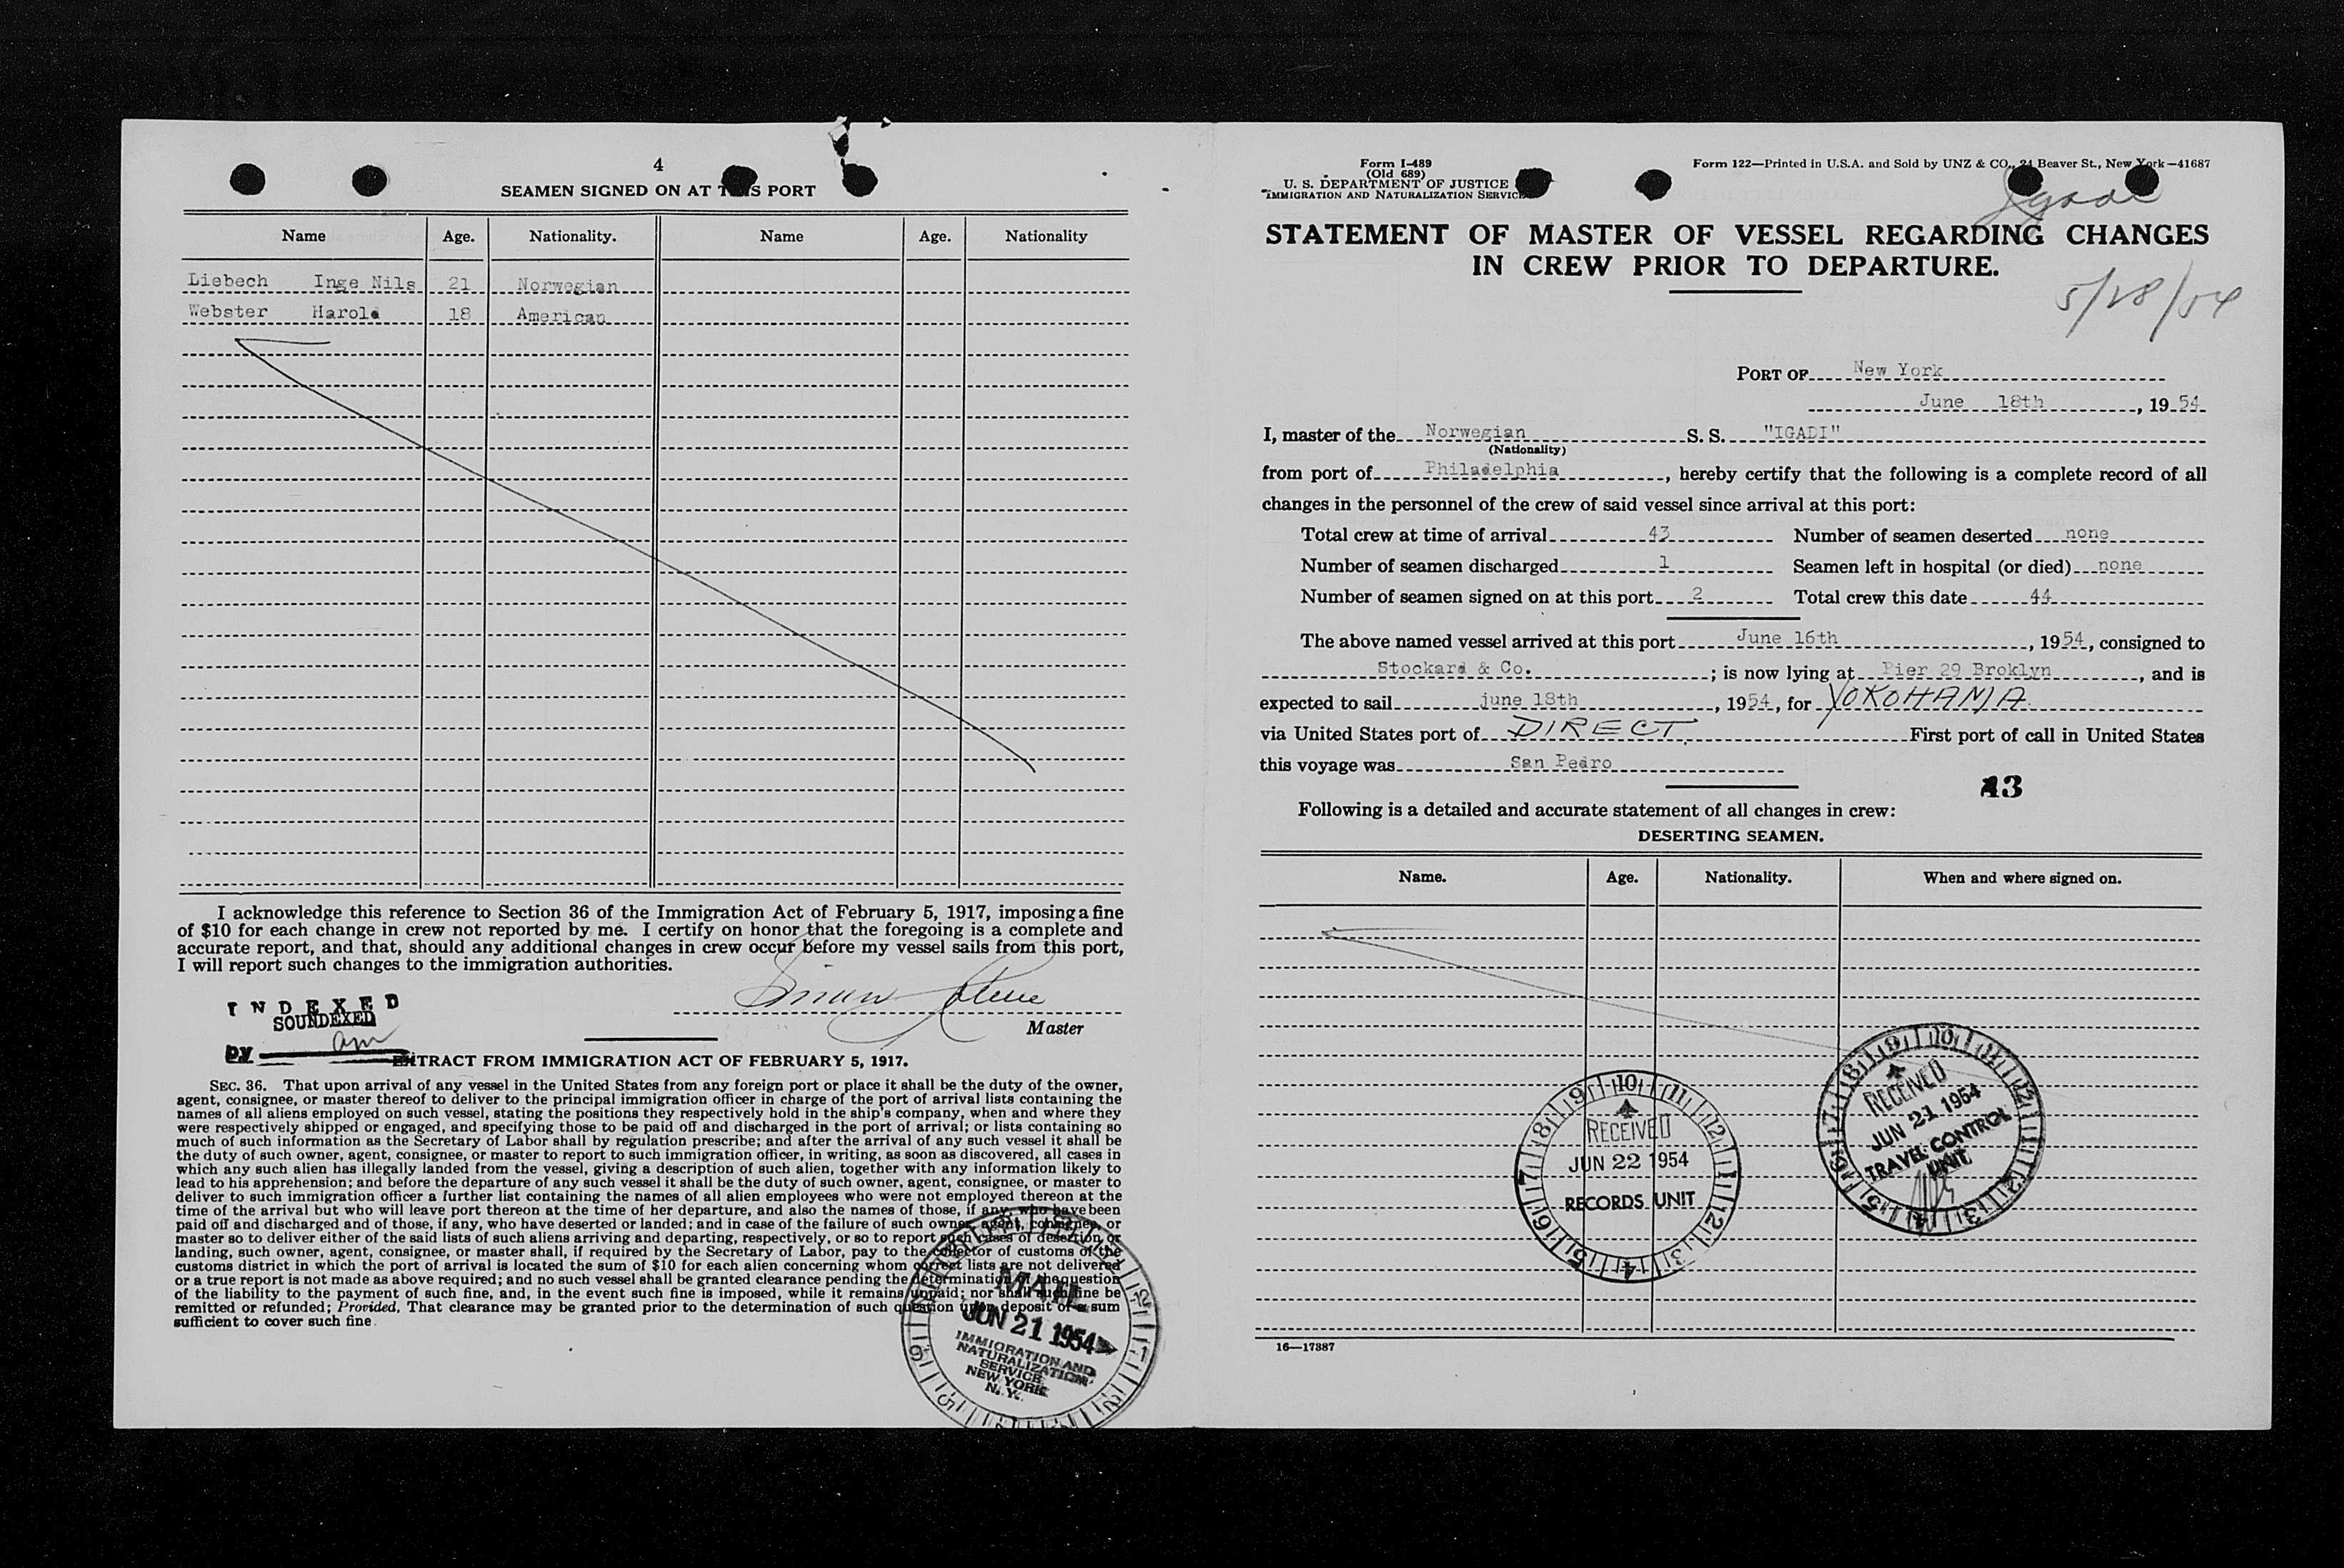 4
SEAMEN SIGNED ON AT THIS PORT
Name Age. Nationality. Name Age. Nationality
Liebech Inge Nils 21 Norwegian
Webster Harold 18 American
I acknowledge this reference to Section 36 of the Immigration Act of February 5, 1917, imposing a fine
of $10 for each change in crew not reported by me. I certify on honor that the foregoing is a complete and
accurate report, and that, should any additional changes in crew occur before my vessel sails from this port,
I will report such changes to the immigration authorities.
Master
INDEXED
SOUNDEXED
by am
EXTRACT FROM IMMIGRATION ACT OF FEBRUARY 5, 1917.
SEC. 36. That upon arrival of any vessel in the United States from any foreign port or place it shall be the duty of the owner,
agent, consignee, or master thereof to deliver to the principal immigration officer in charge of the port of arrival lists containing the
names of all aliens employed on such vessel, stating the positions they respectively hold in the ship's company, when and where they
were respectively shipped or engaged, and specifying those to be paid off and discharged in the port of arrival; or lists containing so
much of such information as the Secretary of Labor shall by regulation prescribe; and after the arrival of any such vessel it shall be
the duty of such owner, agent, consignee, or master to report to such immigration officer, in writing, as soon as discovered, all cases in
which any such alien has illegally landed from the vessel, giving a description of such alien, together with any information likely to
lead to his apprehension; and before the departure of any such vessel it shall be the duty of such owner, agent, consignee, or master to
deliver to such immigration officer a further list containing the names of all alien employees who were not employed thereon at the
time of the arrival but who will leave port thereon at the time of her departure, and also the names of those, if any, who have been
paid off and discharged and of those, if any, who have deserted or landed; and in case of the failure of such owner, agent, consignee, or
master so to deliver either of the said lists of such aliens arriving and departing, respectively, or so to report such cases of desertion or
landing, such owner, agent, consignee, or master shall, if required by the Secretary of Labor, pay to the collector of customs of the
customs district in which the port of arrival is located the sum of $10 for each alien concerning whom correct lists are not delivered
or a true report is not made as above required; and no such vessel shall be granted clearance pending the determination of the question
of the liability to the payment of such fine, and, in the event such fine is imposed, while it remains unpaid; nor shall such fine be
remitted or refunded; Provided, That clearance may be granted prior to the determination of such question upon deposit of a sum
sufficient to cover such fine.
MAIL
JUN 21 1954
IMMIGRATION AND
NATURALIZATION
SERVICE
NEW YORK
N. Y.
Form I-489
(Old 689)
U. S. DEPARTMENT OF JUSTICE
IMMIGRATION AND NATURALIZATION SERVICE
Form 122—Printed in U.S.A. and Sold by UNZ & CO., 24 Beaver St., New York—41687
Igadi
STATEMENT OF MASTER OF VESSEL REGARDING CHANGES
IN CREW PRIOR TO DEPARTURE.
5/28/54
PORT OF New York
June 18th, 1954
I, master of the Norwegian S. S. "IGADI"
(Nationality)
from port of Philadelphia, hereby certify that the following is a complete record of all
changes in the personnel of the crew of said vessel since arrival at this port:
Total crew at time of arrival 43 Number of seamen deserted none
Number of seamen discharged 1 Seamen left in hospital (or died) none
Number of seamen signed on at this port 2 Total crew this date 44
The above named vessel arrived at this port June 16th, 1954, consigned to
Stockard & Co. ; is now lying at Pier 29 Broklyn, and is
expected to sail june 18th, 1954, for YOKOHAMA
via United States port of DIRECT First port of call in United States
this voyage was San Pedro
13
Following is a detailed and accurate statement of all changes in crew:
DESERTING SEAMEN.
Name. Age. Nationality. When and where signed on.
RECEIVED
JUN 22 1954
RECORDS UNIT
RECEIVED
JUN 21 1954
TRAVEL CONTROL
UNIT
16—17387